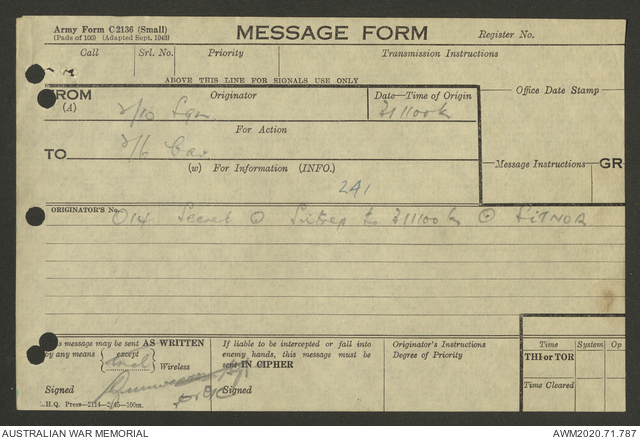 Army Form C2136 (Small)
(Pads of 100) (Adapted Sept. 1943)
MESSAGE FORM
Register No.
Call Srl. No. Priority Transmission Instructions
ABOVE THIS LINE FOR SIGNALS USE ONLY
FROM
(A)
Originator
Date—Time of Origin
Office Date Stamp
2/10 Sqn
311100k
For Action
TO
2/6 Cav
(w) For Information (INFO.)
Message Instructions
GR
241
ORIGINATOR'S No.
O14 Secret O Sitrep to 311100k O SITNOR
This message may be sent AS WRITTEN
by any means except Wireless
If liable to be intercepted or fall into
enemy hands, this message must be
sent IN CIPHER
Originator's Instructions
Degree of Priority
Time System Op
THI or TOR
Time Cleared
Signed
Signed
L.H.Q. Press—2114—2/45—100m.
AUSTRALIAN WAR MEMORIAL
AWM2020.71.787